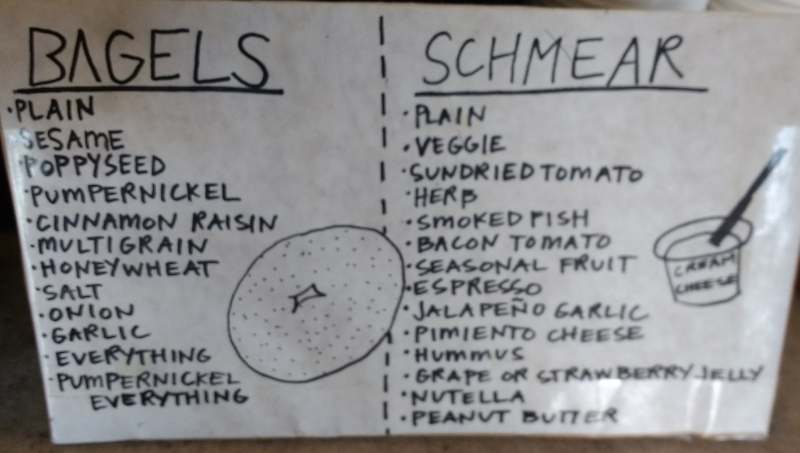 BAGELS
·PLAIN
·SESAME
·POPPYSEED
·PUMPERNICKEL
·CINNAMON RAISIN
·MULTIGRAIN
·HONEYWHEAT
·SALT
·ONION
·GARLIC
·EVERYTHING
·PUMPERNICKEL
EVERYTHING
SCHMEAR
·PLAIN
·VEGGIE
·SUNDRIED TOMATO
·HERB
·SMOKED FISH
·BACON TOMATO
·SEASONAL FRUIT
·ESPRESSO
·JALAPEÑO GARLIC
·PIMIENTO CHEESE
·HUMMUS
·GRAPE OR STRAWBERRY JELLY
·NUTELLA
·PEANUT BUTTER
CREAM
CHEESE